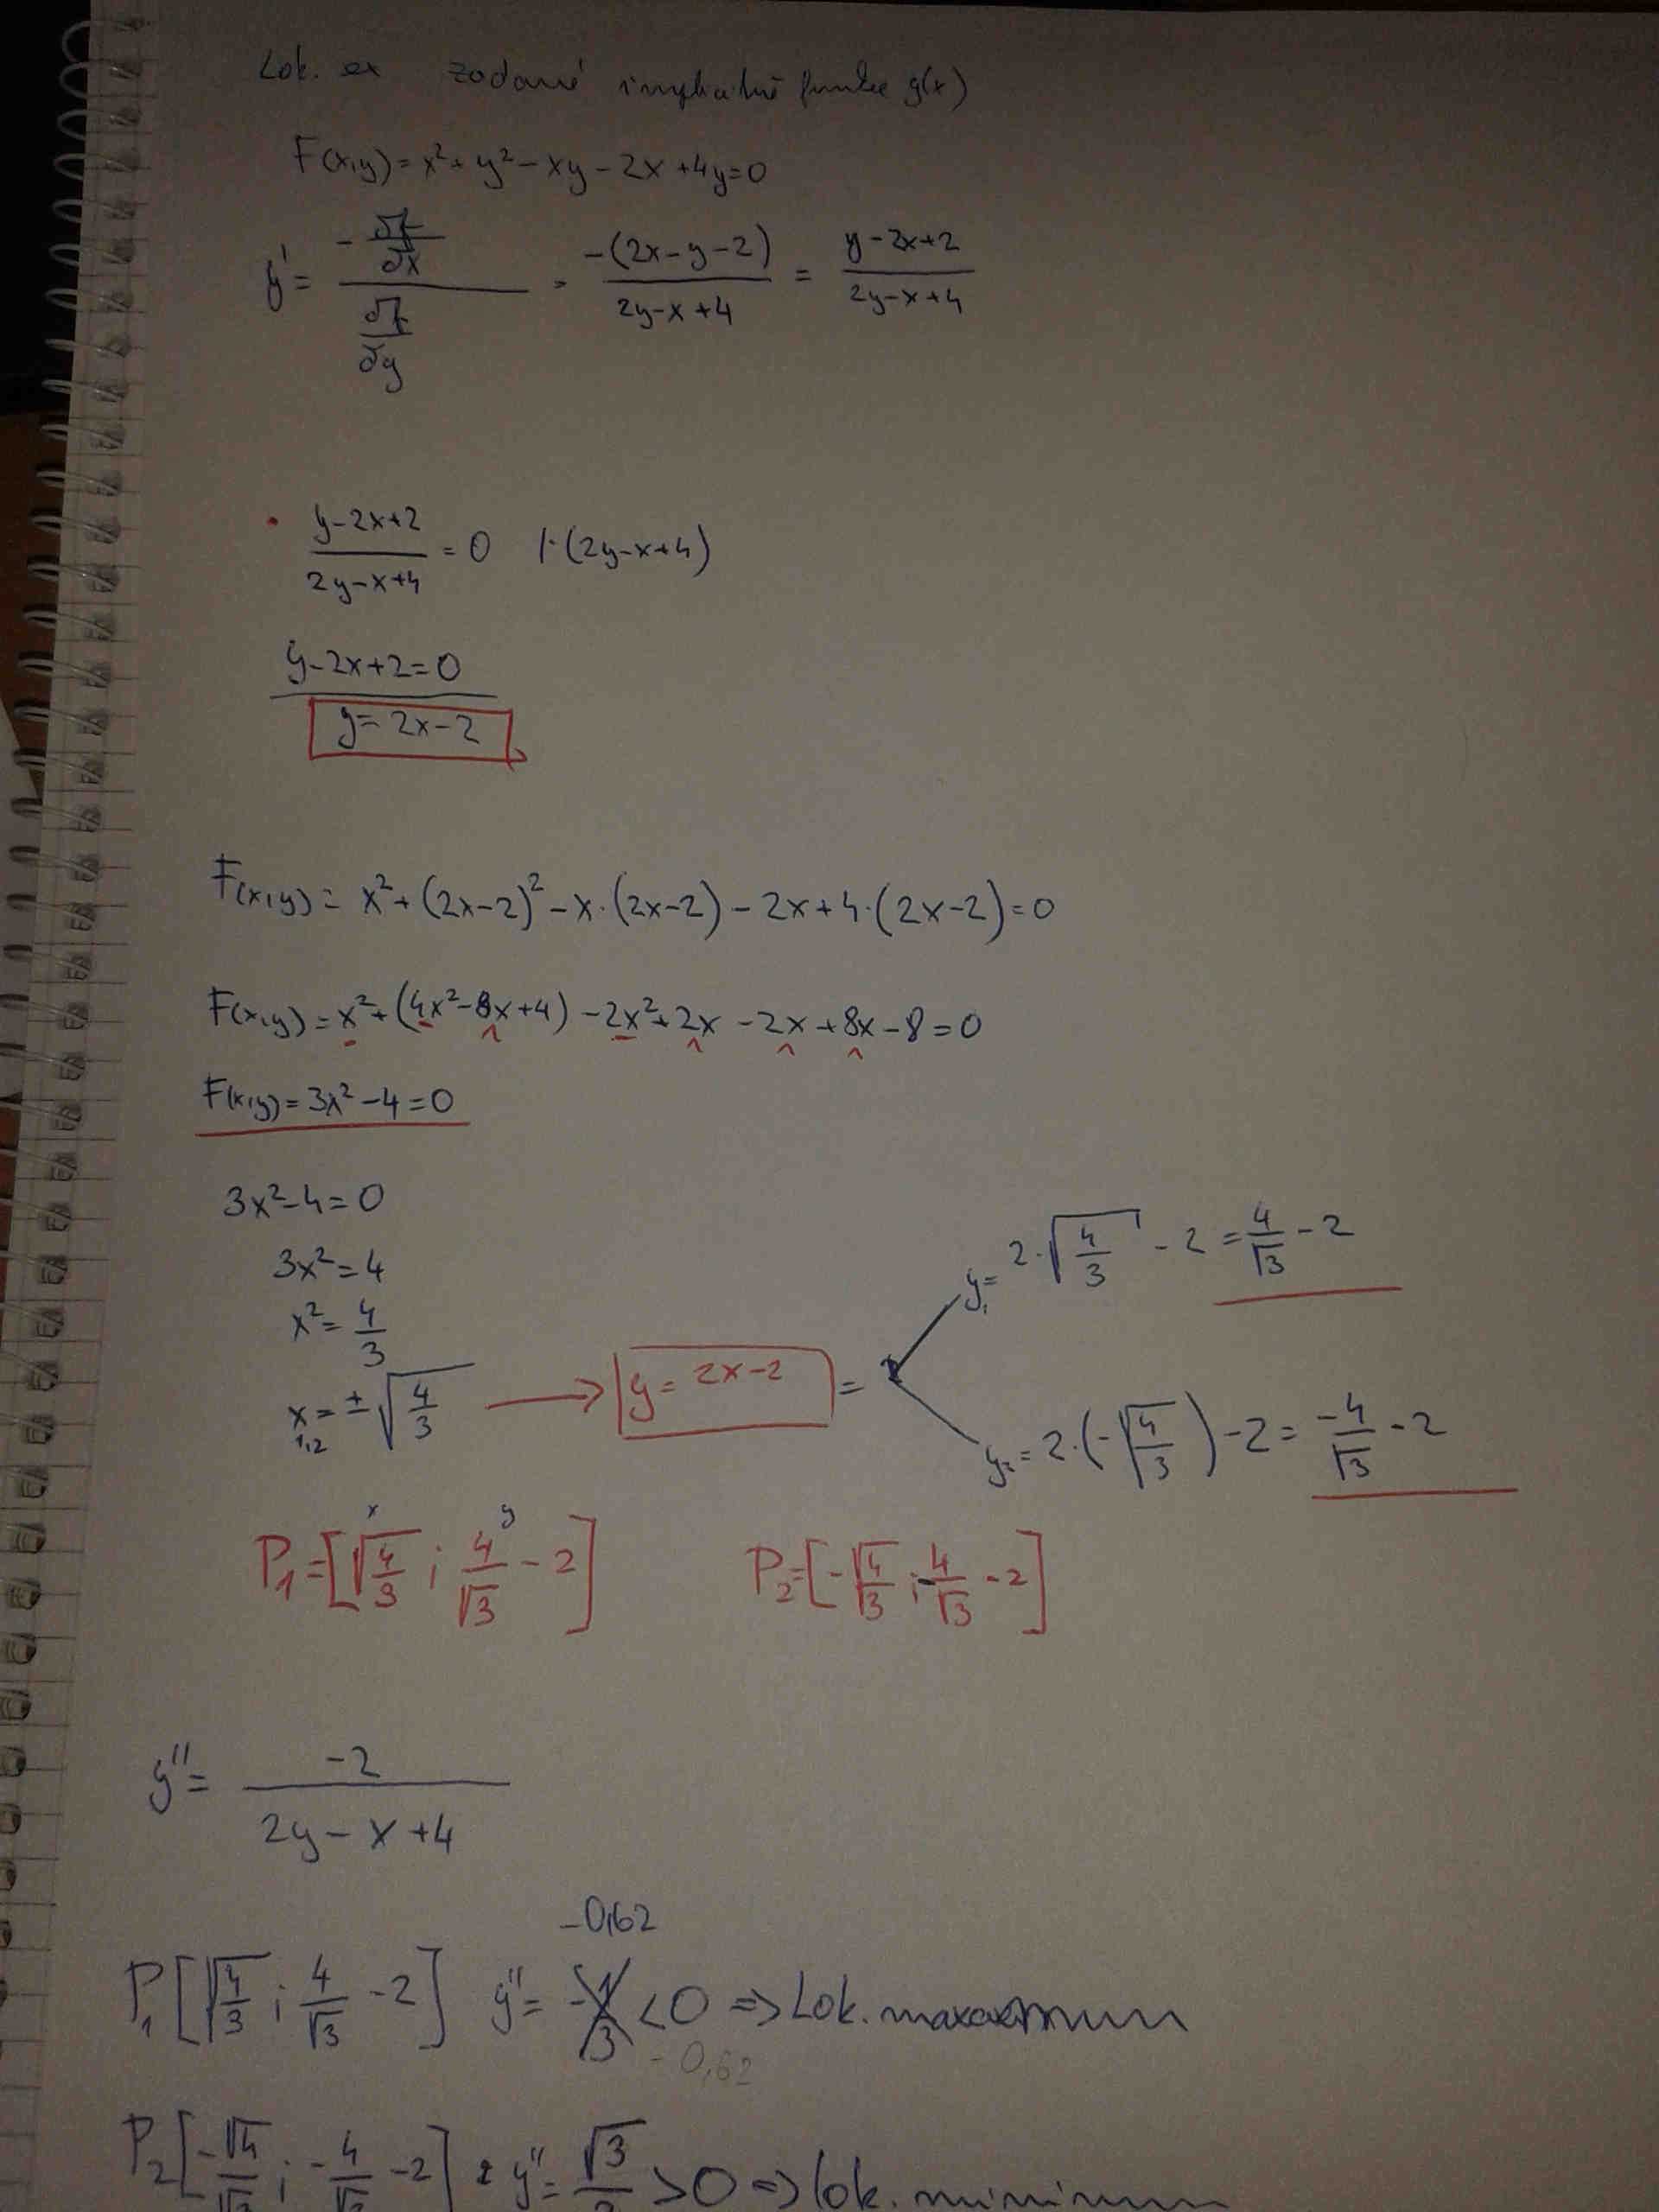 Lok. ex zadané implicitně funkce y(x)
F(x,y) = x² + y² - xy - 2x + 4y = 0
y' = -∂F/∂x / ∂F/∂y = -(2x-y-2) / 2y-x+4 = y-2x+2 / 2y-x+4
y-2x+2 / 2y-x+4 = 0 /·(2y-x+4)
y-2x+2=0
y = 2x-2
F(x,y) = x² + (2x-2)² - x·(2x-2) - 2x + 4·(2x-2) = 0
F(x,y) = x² + (4x²-8x+4) - 2x² + 2x - 2x + 8x - 8 = 0
F(x,y) = 3x² - 4 = 0
3x²-4=0
3x²=4
x² = 4/3
x1,2 = ±√4/3 → y = 2x-2 =
y1 = 2·√4/3 - 2 = 4/√3 - 2
y2 = 2·(-√4/3) - 2 = -4/√3 - 2
x y
P1 = [√4/3 ; 4/√3 - 2] P2 = [-√4/3 ; -4/√3 - 2]
y'' = -2 / 2y - x + 4
-0,62
P1 [√4/3 ; 4/√3 - 2] y'' = < 0 => Lok. maximum
-0,62
P2 [-√4/√3 ; -4/√3 - 2] y'' = √3 > 0 => lok. minimum